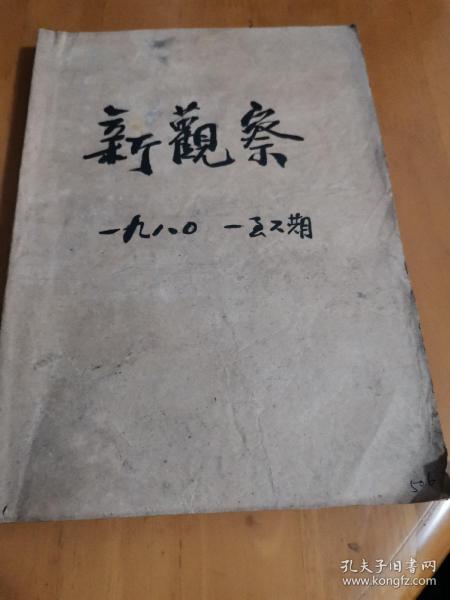 新觀察
一九八〇 一至六期
孔夫子旧书网
www.kongfz.com